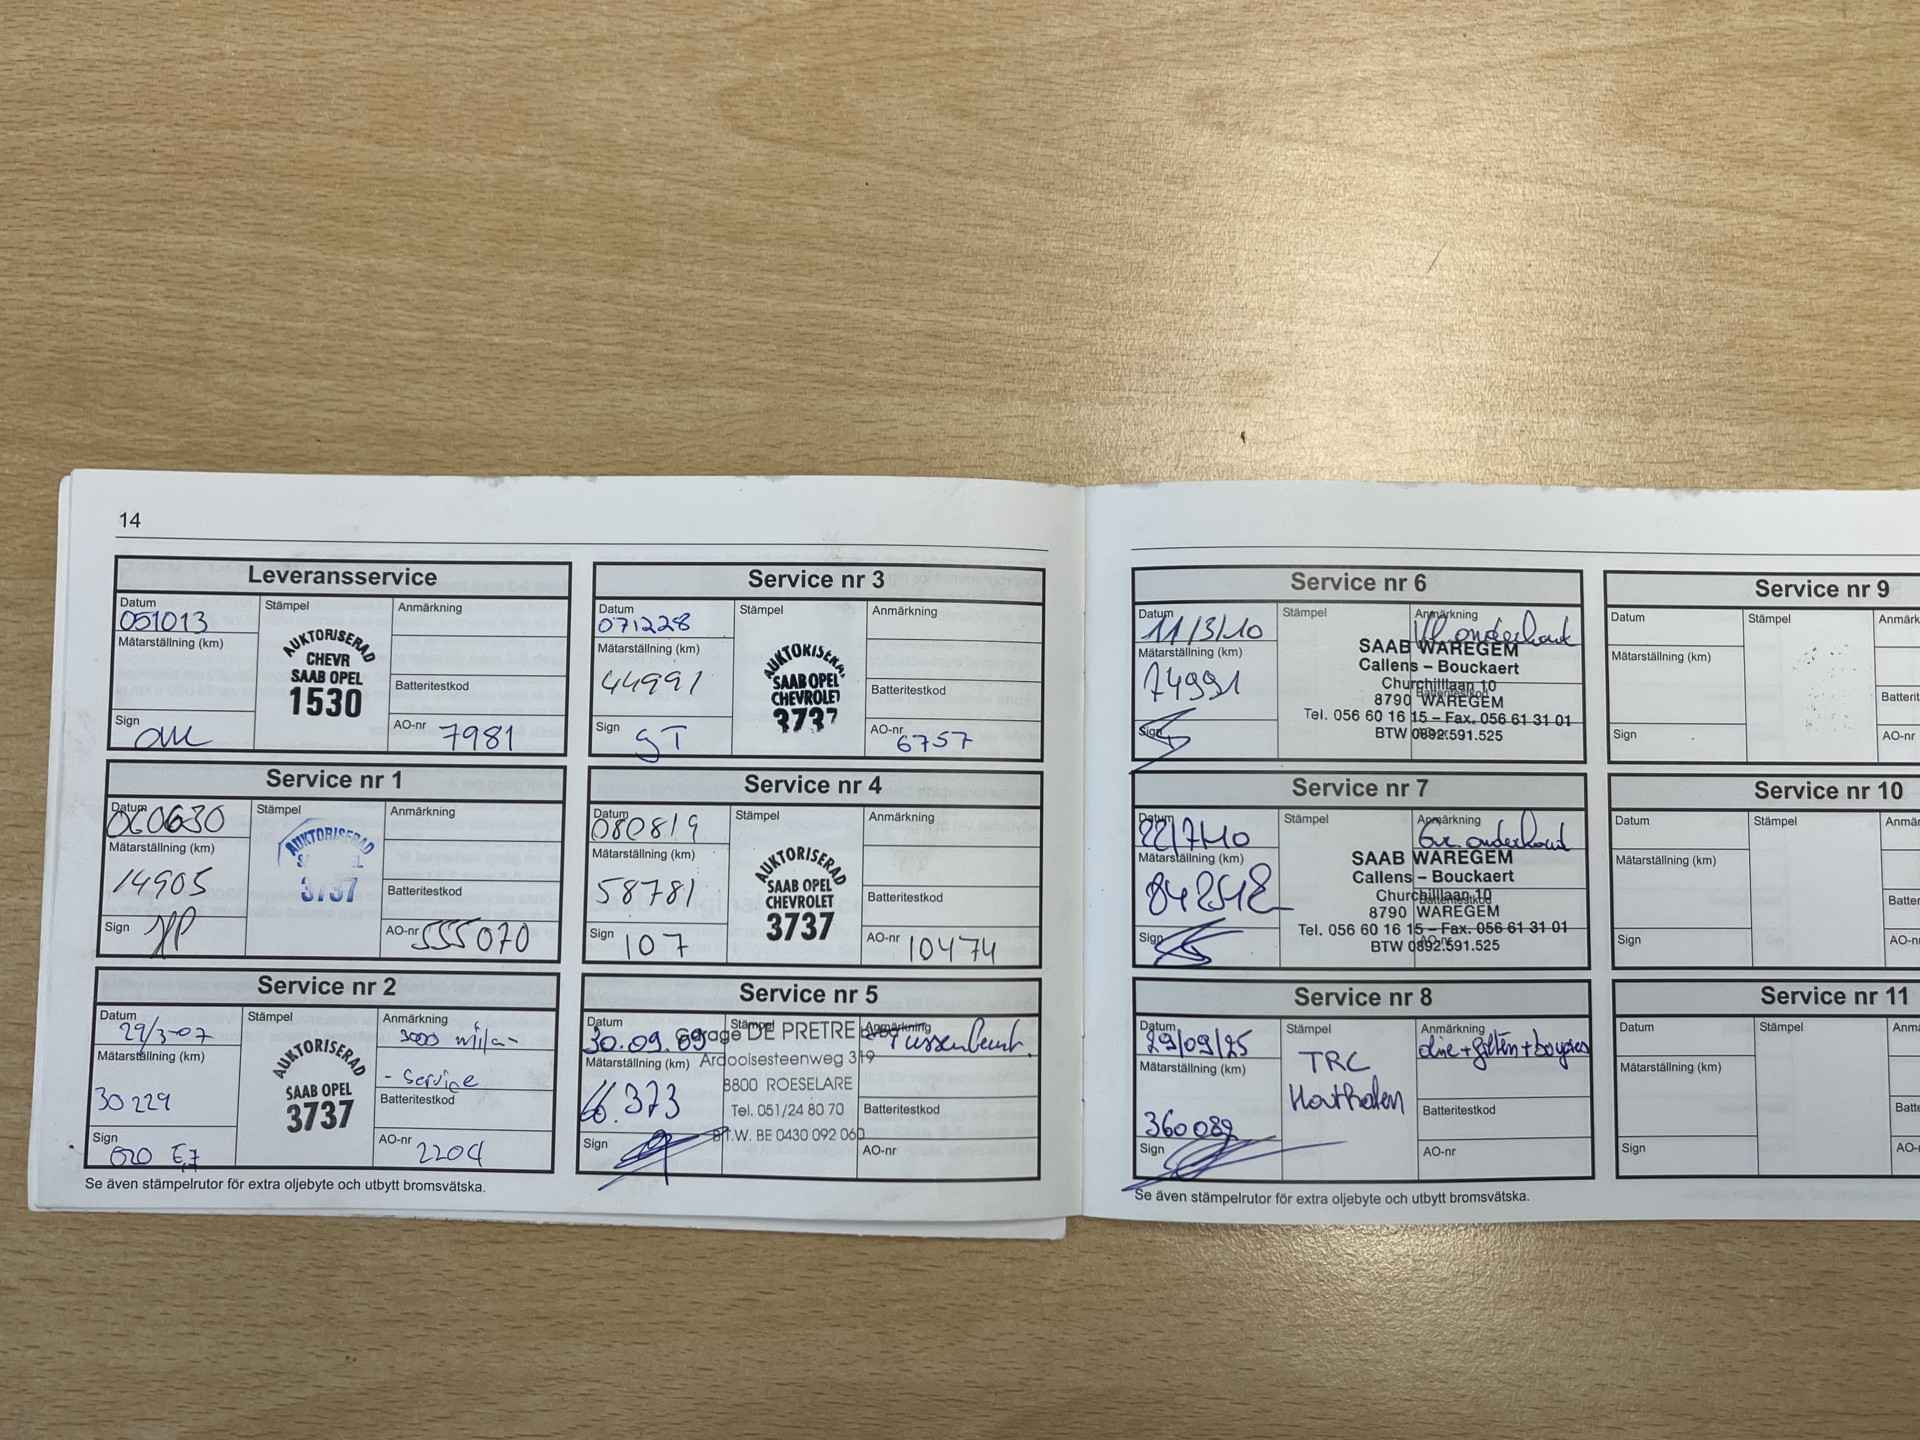 14
Leveransservice
Datum
051013
Stämpel
Anmärkning
Mätarställning (km)
AUKTORISERAD
CHEVR
SAAB OPEL
1530
Batteritestkod
Sign
AO-nr 7981
Service nr 1
Datum
060630
Stämpel
Anmärkning
Mätarställning (km)
14905
AUKTORISERAD
3737
Batteritestkod
Sign
AO-nr 555070
Service nr 2
Datum
29/3-07
Stämpel
Anmärkning
3000 mil/a-
- Service
Mätarställning (km)
30229
AUKTORISERAD
SAAB OPEL
3737
Batteritestkod
Sign
AO-nr
2204
Se även stämpelrutor för extra oljebyte och utbytt bromsvätska.
Service nr 3
Datum
071228
Stämpel
Anmärkning
Mätarställning (km)
44991
AUKTORISERAD
SAAB OPEL
CHEVROLET
3737
Batteritestkod
Sign
GT
AO-nr
6757
Service nr 4
Datum
080819
Stämpel
Anmärkning
Mätarställning (km)
58781
AUKTORISERAD
SAAB OPEL
CHEVROLET
3737
Batteritestkod
Sign
107
AO-nr 10474
Service nr 5
Datum
30.09.09
Stämpel
Anmärkning
Garage DE PRETRE
Ardooisesteenweg 319
8800 ROESELARE
Tel. 051/24 80 70
B.T.W. BE 0430 092 060
Mätarställning (km)
66.373
Batteritestkod
Sign
AO-nr
Service nr 6
Datum
11/3/10
Stämpel
Anmärkning
onderhoud
Mätarställning (km)
74991
SAAB WAREGEM
Callens – Bouckaert
Churchilllaan 10
8790 WAREGEM
Tel. 056 60 16 15 – Fax. 056 61 31 01
BTW 0892.591.525
Batteritestkod
Sign
Service nr 7
Datum
22/7/10
Stämpel
Anmärkning
onderhoud
Mätarställning (km)
SAAB WAREGEM
Callens – Bouckaert
Churchilllaan 10
8790 WAREGEM
Tel. 056 60 16 15 – Fax. 056 61 31 01
BTW 0892.591.525
Batteritestkod
Sign
AO-nr
Service nr 8
Datum
29/09/25
Stämpel
TRC
Houthalen
Anmärkning
olie+filters+bougies
Mätarställning (km)
360089
Batteritestkod
Sign
AO-nr
Se även stämpelrutor för extra oljebyte och utbytt bromsvätska.
Service nr 9
Datum
Stämpel
Anmärk
Mätarställning (km)
Batterit
Sign
AO-nr
Service nr 10
Datum
Stämpel
Anmär
Mätarställning (km)
Batter
Sign
AO-n
Service nr 11
Datum
Stämpel
Anmä
Mätarställning (km)
Batte
Sign
AO-